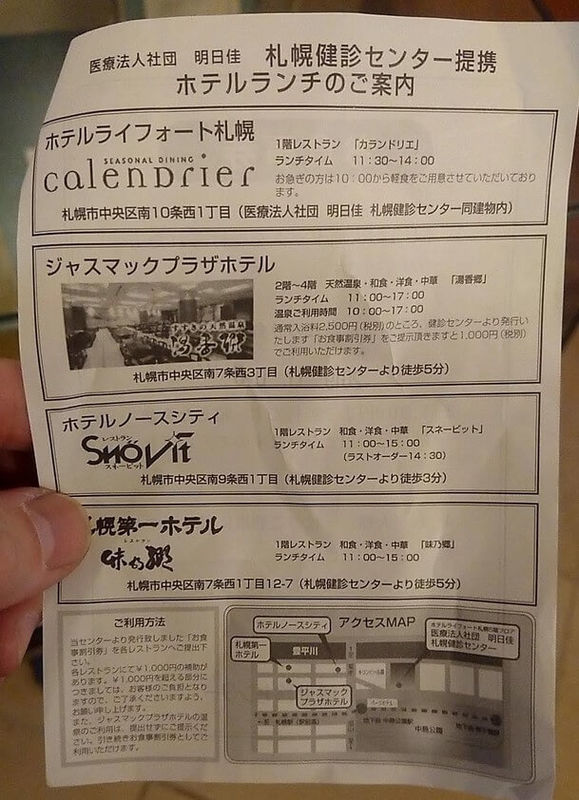 医療法人社団 明日佳 札幌健診センター提携
ホテルランチのご案内
ホテルライフォート札幌
SEASONAL DINING
calendrier
1階レストラン 「カランドリエ」
ランチタイム 11:30~14:00
お急ぎの方は10:00から軽食をご用意させていただいており
ます。
札幌市中央区南10条西1丁目(医療法人社団 明日佳 札幌健診センター同建物内)
ジャスマックプラザホテル
すすきの天然温泉
湯香郷
2階~4階 天然温泉・和食・洋食・中華 「湯香郷」
ランチタイム 11:00~17:00
温泉ご利用時間 10:00~17:00
通常入浴料2,500円(税別)のところ、健診センターより発行い
たします「お食事割引券」をご提示頂きますと1,000円(税別)
でご利用いただけます。
札幌市中央区南7条西3丁目(札幌健診センターより徒歩5分)
ホテルノースシティ
レストラン
SNOVIT
スネービット
1階レストラン 和食・洋食・中華 「スネービット」
ランチタイム 11:00~15:00
(ラストオーダー14:30)
札幌市中央区南9条西1丁目(札幌健診センターより徒歩3分)
幌第一ホテル
レストラン
味乃郷
1階レストラン 和食・洋食・中華 「味乃郷」
ランチタイム 11:00~15:00
札幌市中央区南7条西1丁目12-7(札幌健診センターより徒歩5分)
ご利用方法
当センターより発行致しました「お食
事割引券」を各レストランへご提出下
さい。
各レストランにて¥1,000円の補助が
あります。¥1,000円を超える部分に
つきましては、お客様のご負担となり
ますので、ご了承くださいますよう、
お願い申し上げます。
また、ジャスマックプラザホテルの温
泉のご利用は、提出せずにご提示くだ
さい。引き続きお食事割引券としてご
利用いただけます。
アクセスMAP
ホテルノースシティ
札幌第一
ホテル
豊平川
ジャスマック
プラザホテル
ホテルライフォート札幌5階フロア
医療法人社団 明日佳
札幌健診センター
札幌(駅前通)
地下鉄 中島公園駅
中島公園